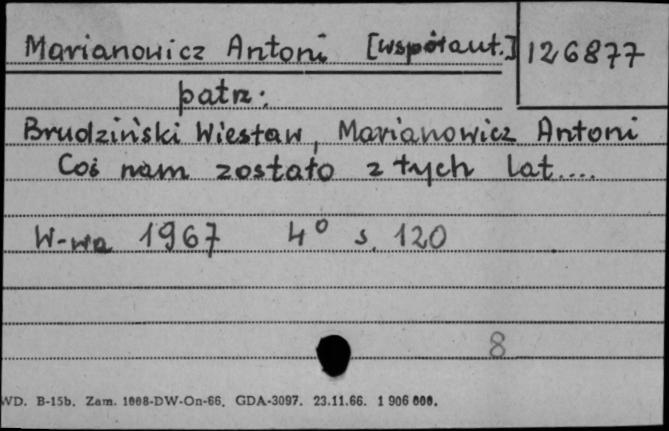 Marianowicz Antoni [współaut.] 126877
patrz:
Brudziński Wiesław, Marianowicz Antoni
Coś nam zostało z tych lat....
W-wa 1967 4° s. 120
8
WD. B-15b. Zam. 1008-DW-On-66. GDA-3097. 23.11.66. 1 906 000.